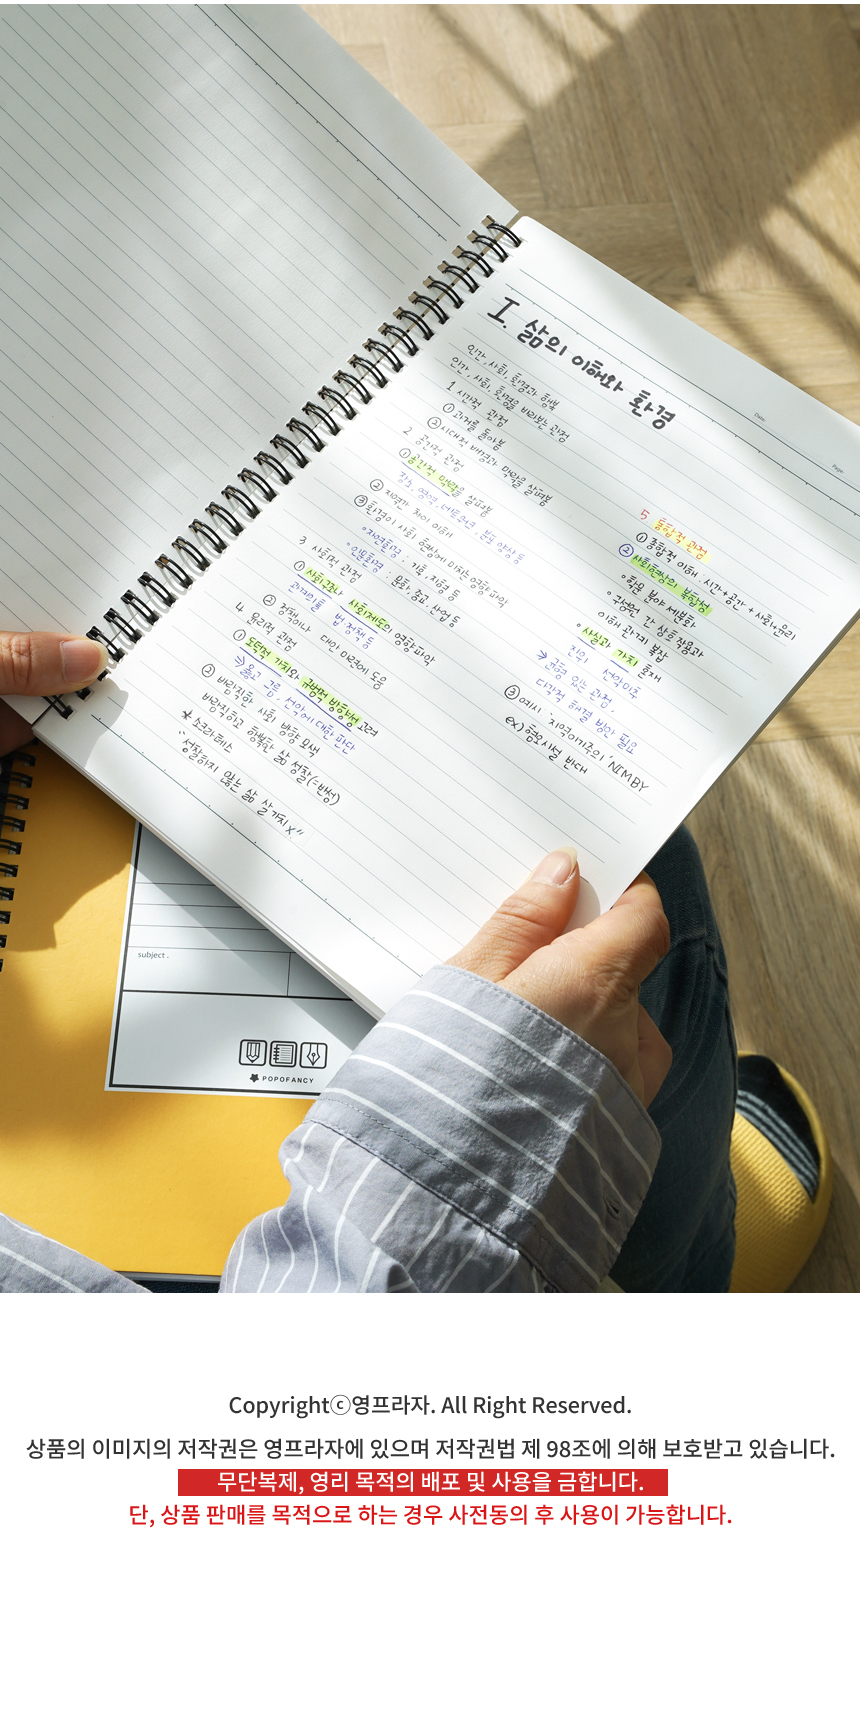 Date.
Page.
I. 삶의 이해와 환경
인간, 사회, 환경과 행복
인간, 사회, 환경을 바라보는 관점
1 시간적 관점
① 과거를 돌아봄
② 시대적 배경과 맥락을 살펴봄
2 공간적 관점
① 공간적 맥락을 살펴봄
장소, 영역, 네트워크, 분포 양상 등
② 지역간 차이 이해
③ 환경이 사회 현상에 미치는 영향 파악
∘자연환경 : 기후, 지형 등
∘인문환경 : 문화, 종교, 산업 등
3 사회적 관점
① 사회구조나 사회제도의 영향 파악
법 정책 등
② 정책이나 대안 마련에 도움
4 윤리적 관점
① 도덕적 가치와 규범적 방향성 고려
⇒ 옳고 그름, 선악에 대한 판단
② 바람직한 사회 방향 모색
바람직하고 행복한 삶 성찰(=반성)
* 소크라테스
"성찰하지 않는 삶 살 가치 X"
5 통합적 관점
① 통합적 이해 : 시간+공간+사회+윤리
② 사회현상의 복합성
∘학문 분야 세분화
∘구성원 간 상호작용과
이해 관계 복잡
∘사실과 가치 혼재
지위 선악미추
⇒ 균형 있는 관점,
다각적 해결 방안 필요
③ 예시 : 지역이기주의 'NIMBY
ex) 혐오시설 반대
subject .
POPOFANCY
Copyrightⓒ영프라자. All Right Reserved.
상품의 이미지의 저작권은 영프라자에 있으며 저작권법 제 98조에 의해 보호받고 있습니다.
무단복제, 영리 목적의 배포 및 사용을 금합니다.
단, 상품 판매를 목적으로 하는 경우 사전동의 후 사용이 가능합니다.